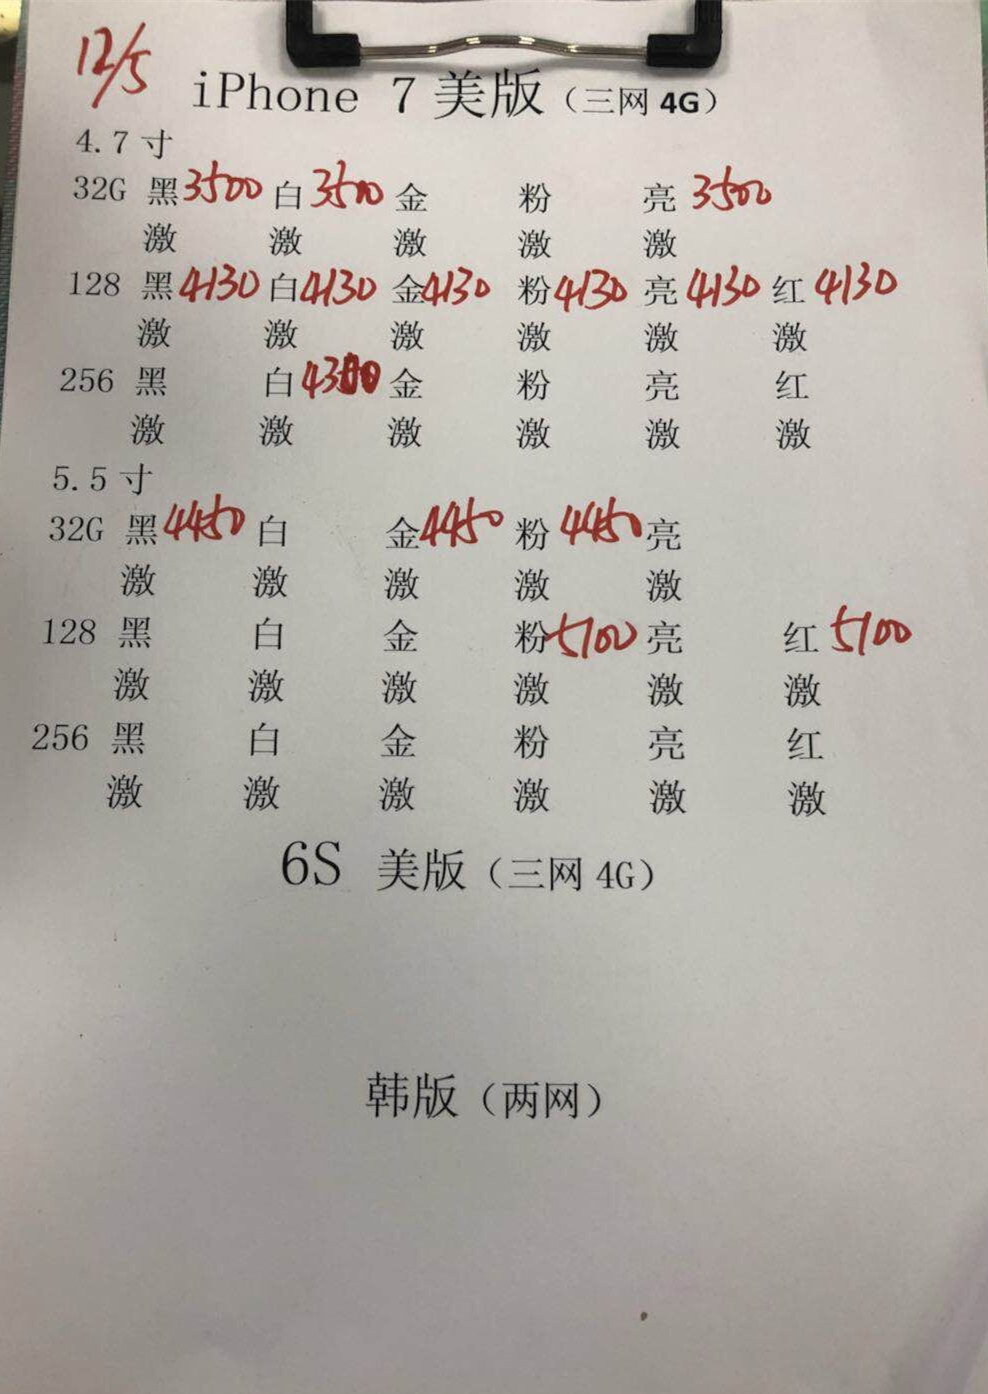 12/5
iPhone 7 美版（三网4G）
4.7寸
32G 黑 3500 白 3500 金 粉 亮 3500
激 激 激 激 激
128 黑 4130 白 4130 金 4130 粉 4130 亮 4130 红 4130
激 激 激 激 激 激
256 黑 白 金 粉 亮 红
激 激 激 激 激 激
5.5寸
32G 黑 4450 白 金 4450 粉 4450 亮
激 激 激 激 激
128 黑 白 金 粉 5100 亮 红 5100
激 激 激 激 激 激
256 黑 白 金 粉 亮 红
激 激 激 激 激 激
6S 美版（三网4G）
韩版（两网）